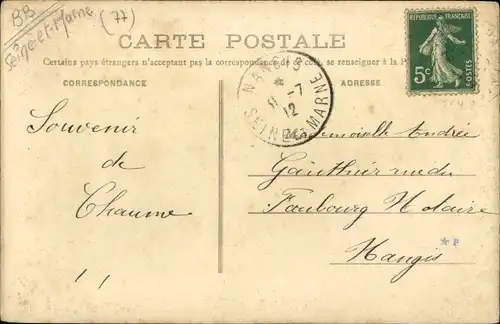 BB
Seine-et-Marne (77)
CARTE POSTALE
Certains pays étrangers n'acceptent pas la correspondance de ce coté, se renseigner à la P
CORRESPONDANCE
ADRESSE
REPUBLIQUE FRANÇAISE
5c
POSTES
11 -7
12
SEINE ET MARNE
Souvenir
de
Chaume
Mademoiselle Andrée
Gauthier rue du
Faubourg Notaire
Nangis
* P